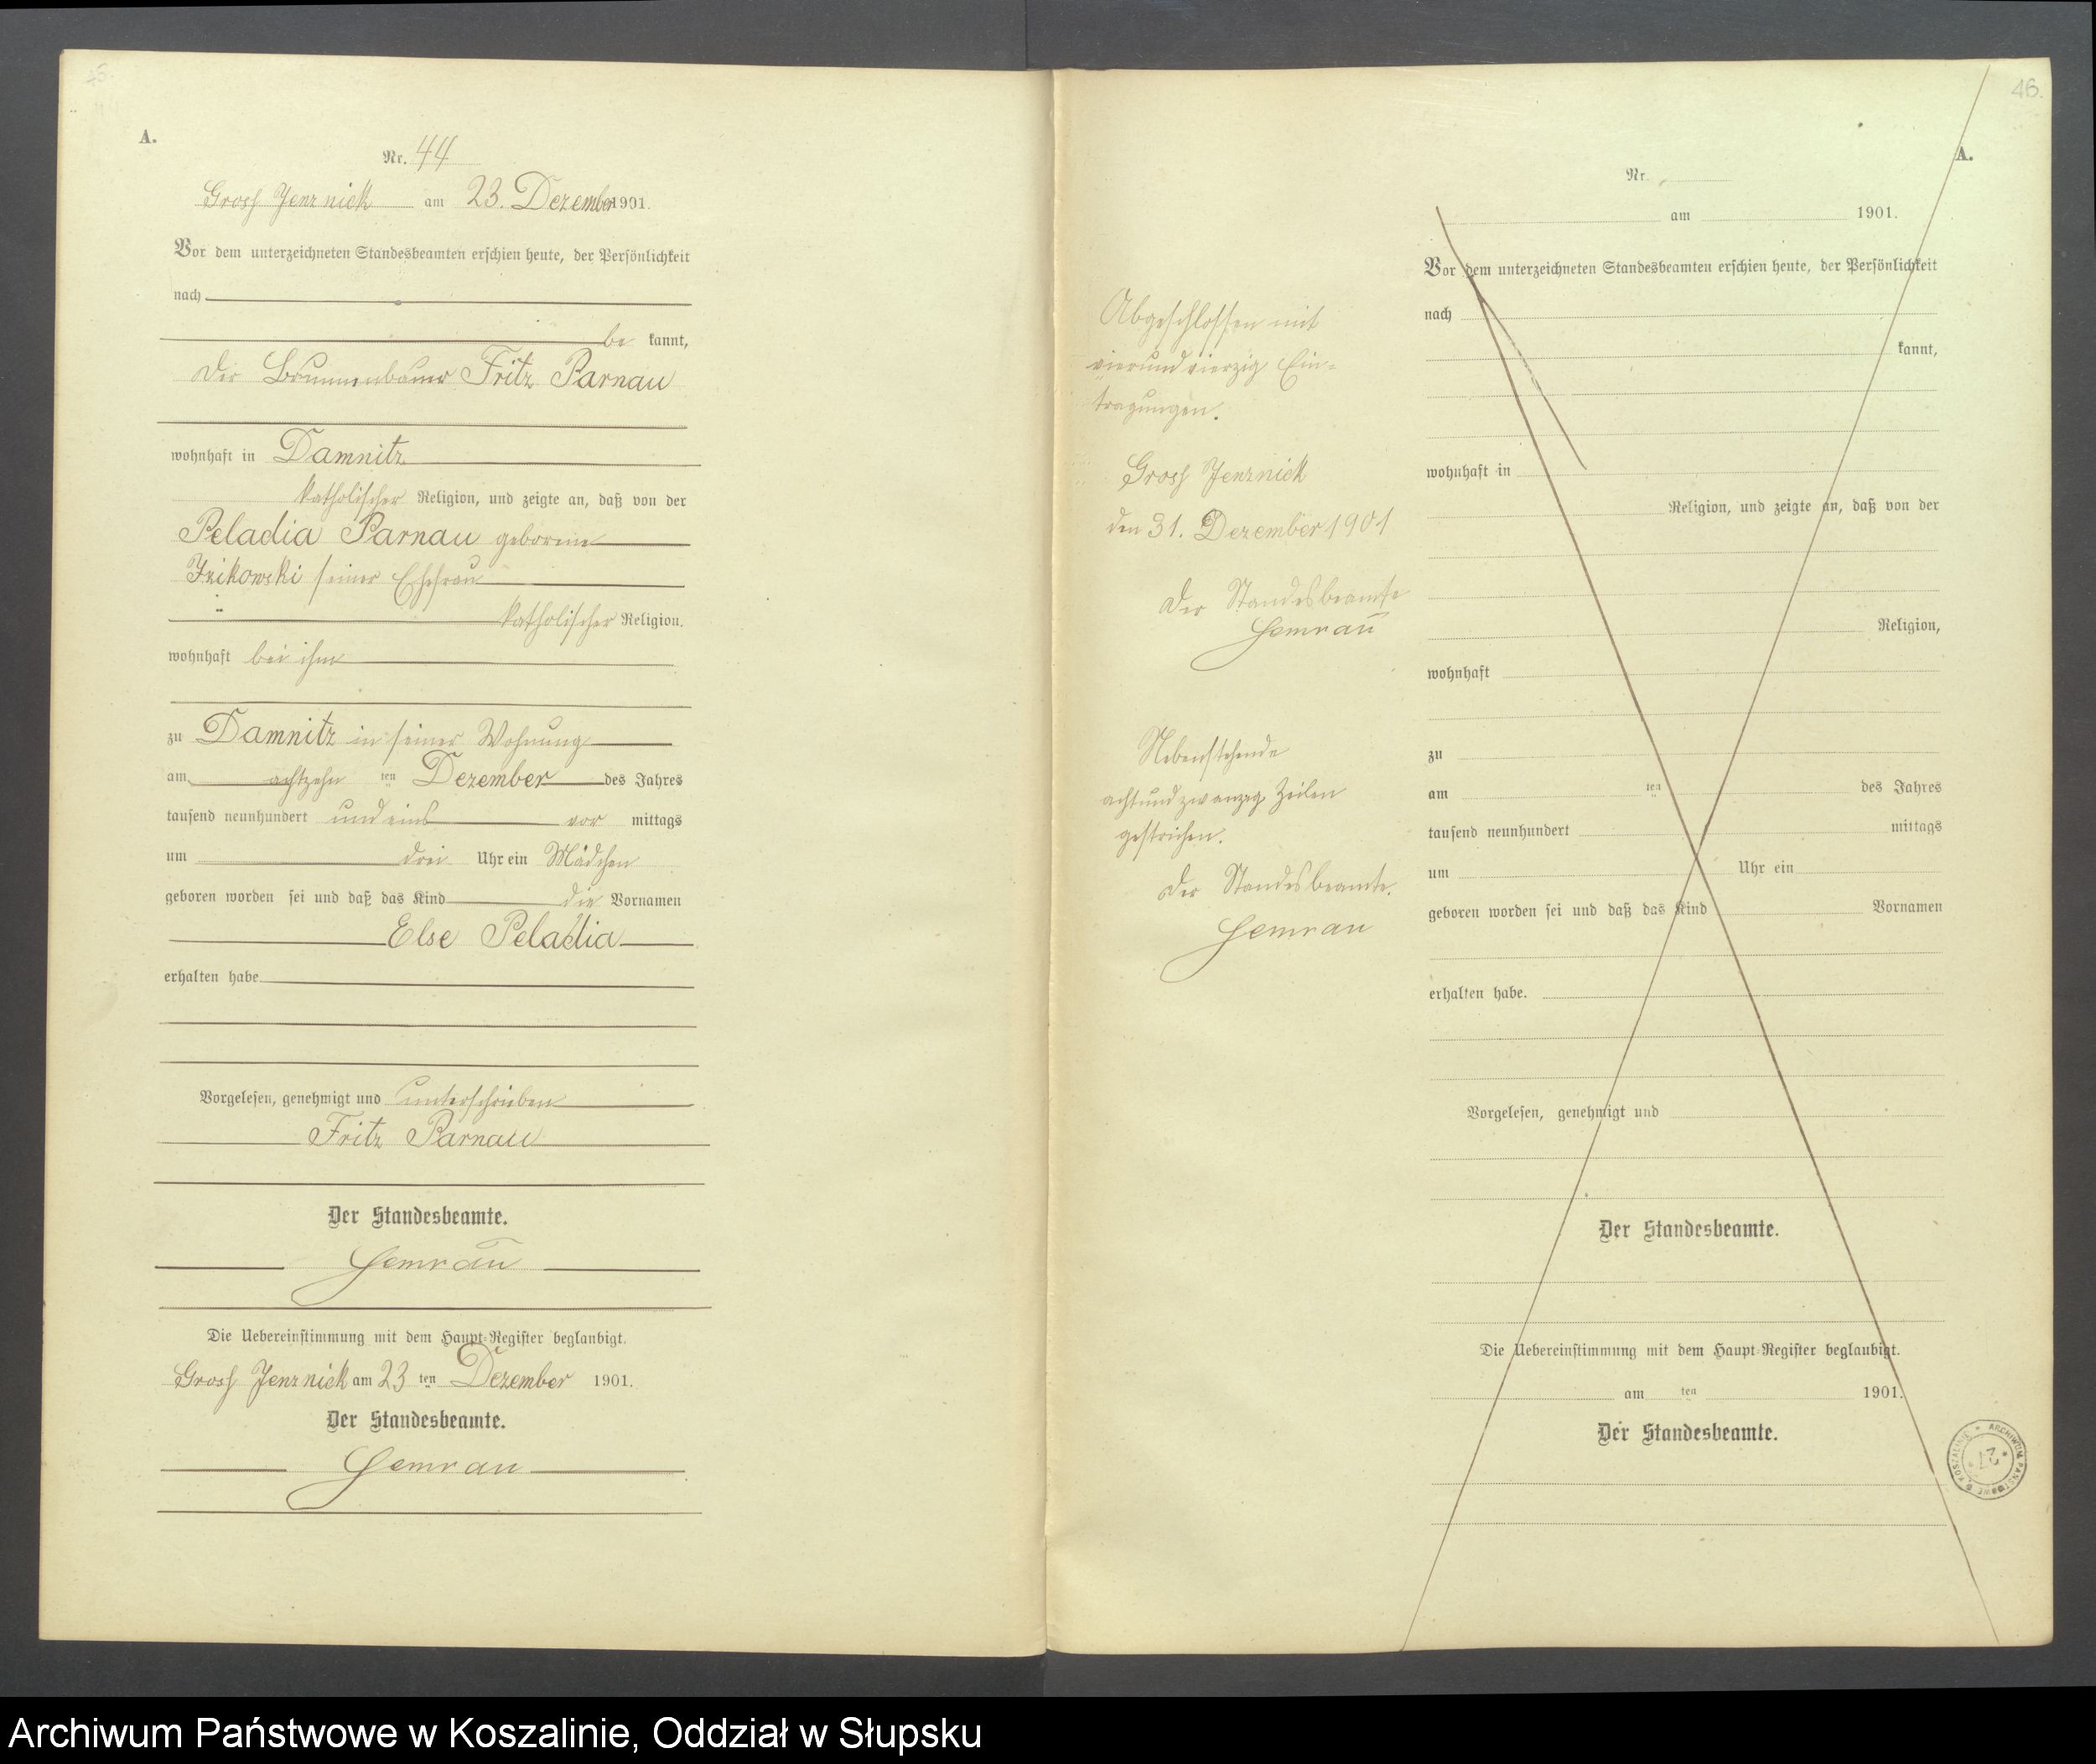 45.
A.
Nr. 44
Gross Jenznick am 23. Dezember 1901.
Vor dem unterzeichneten Standesbeamten erschien heute, der Persönlichkeit
nach
be kannt,
der Brunnenbauer Fritz Parnau
wohnhaft in Damnitz
katholischer Religion, und zeigte an, daß von der
Peladia Parnau geborene
Izikowski seiner Ehefrau
katholischer Religion,
wohnhaft bei ihm
zu Damnitz in seiner Wohnung
am achtzehn ten Dezember des Jahres
tausend neunhundert und eins vor mittags
um drei Uhr ein Mädchen
geboren worden sei und daß das Kind die Vornamen
Else Peladia
erhalten habe
Vorgelesen, genehmigt und unterschrieben
Fritz Parnau
Der Standesbeamte.
Gemrau
Die Uebereinstimmung mit dem Haupt-Register beglaubigt.
Gross Jenznick am 23 ten Dezember 1901.
Der Standesbeamte.
Gemrau
46.
A.
Abgeschlossen mit
vierundvierzig Ein-
tragungen.
Gross Jenznick
den 31. Dezember 1901
Der Standesbeamte
Gemrau
Nebenstehende
achtundzwanzig Zeilen
gestrichen.
Der Standesbeamte.
Gemrau
Nr.
am 1901.
Vor dem unterzeichneten Standesbeamten erschien heute, der Persönlichkeit
nach
kannt,
wohnhaft in
Religion, und zeigte an, daß von der
Religion,
wohnhaft
zu
am ten des Jahres
tausend neunhundert mittags
um Uhr ein
geboren worden sei und daß das Kind Vornamen
erhalten habe.
Vorgelesen, genehmigt und
Der Standesbeamte.
Die Uebereinstimmung mit dem Haupt-Register beglaubigt.
am ten 1901.
Der Standesbeamte.
ARCHIWUM PAŃSTWOWE W KOSZALINIE
27
Archiwum Państwowe w Koszalinie, Oddział w Słupsku